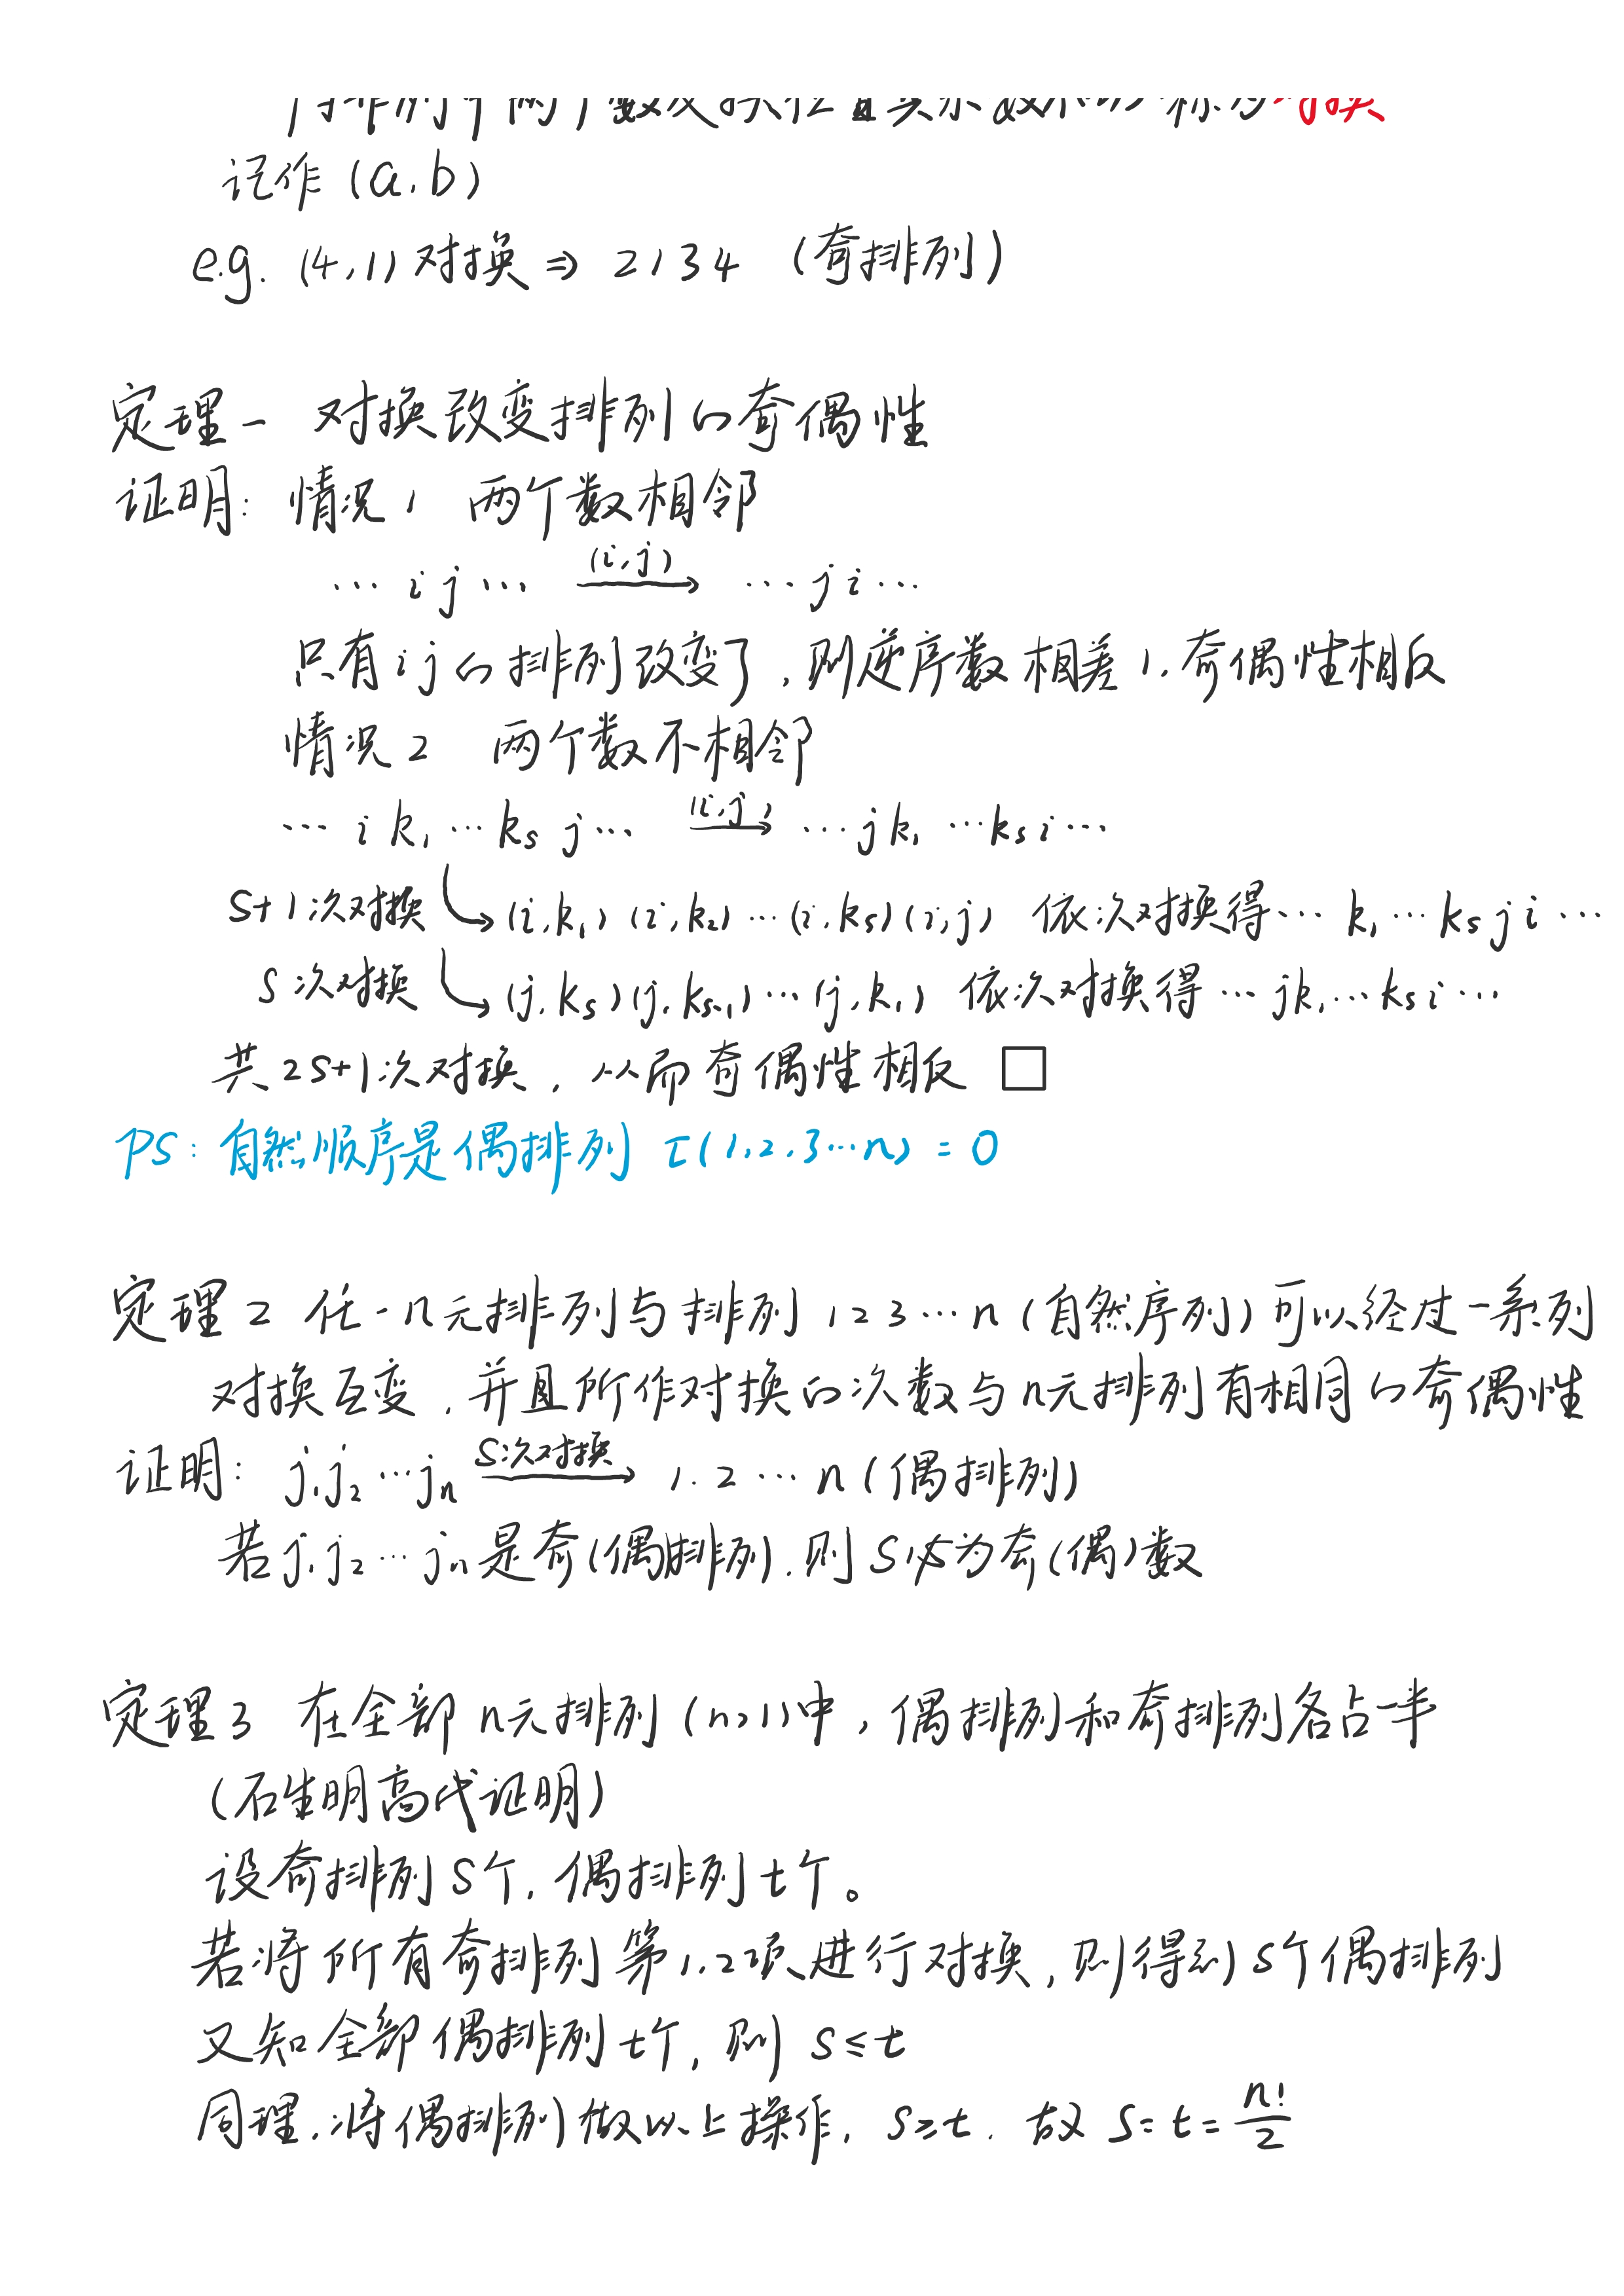 排列中两个数互换位置其余数不动,称为对换
记作 (a,b)
e.g. (4,1) 对换 ⇒ 2134 (奇排列)
定理一 对换改变排列的奇偶性
证明: 情况1 两个数相邻
… i j … (i,j)→ … j i …
只有 i j 的排列改变了, 则逆序数相差1, 奇偶性相反
情况2 两个数不相邻
… i k₁ … kₛ j … (i,j)→ … j k₁ … kₛ i …
S+1次对换 ↳ (i,k₁) (i,k₂) … (i,kₛ) (i,j) 依次对换得 … k₁ … kₛ j i …
S次对换 ↳ (j,kₛ) (j,kₛ₋₁) … (j,k₁) 依次对换得 … j k₁ … kₛ i …
共2S+1次对换, 从而奇偶性相反 □
PS: 自然顺序是偶排列 τ(1,2,3…n) = 0
定理2 任一n元排列与排列 1 2 3 … n (自然序列) 可以经过一系列
对换互变, 并且所作对换的次数与n元排列有相同的奇偶性
证明: j₁ j₂ … jₙ S次对换→ 1. 2 … n (偶排列)
若 j₁ j₂ … jₙ 是奇(偶排列), 则S必为奇(偶)数
定理3 在全部n元排列 (n>1) 中, 偶排列和奇排列各占一半
(石生明高代证明)
设奇排列S个, 偶排列t个。
若将所有奇排列第1,2项进行对换, 则得到S个偶排列
又知全部偶排列t个, 则 S ≤ t
同理, 将偶排列做以上操作, S ≥ t, 故 S = t = n!/2